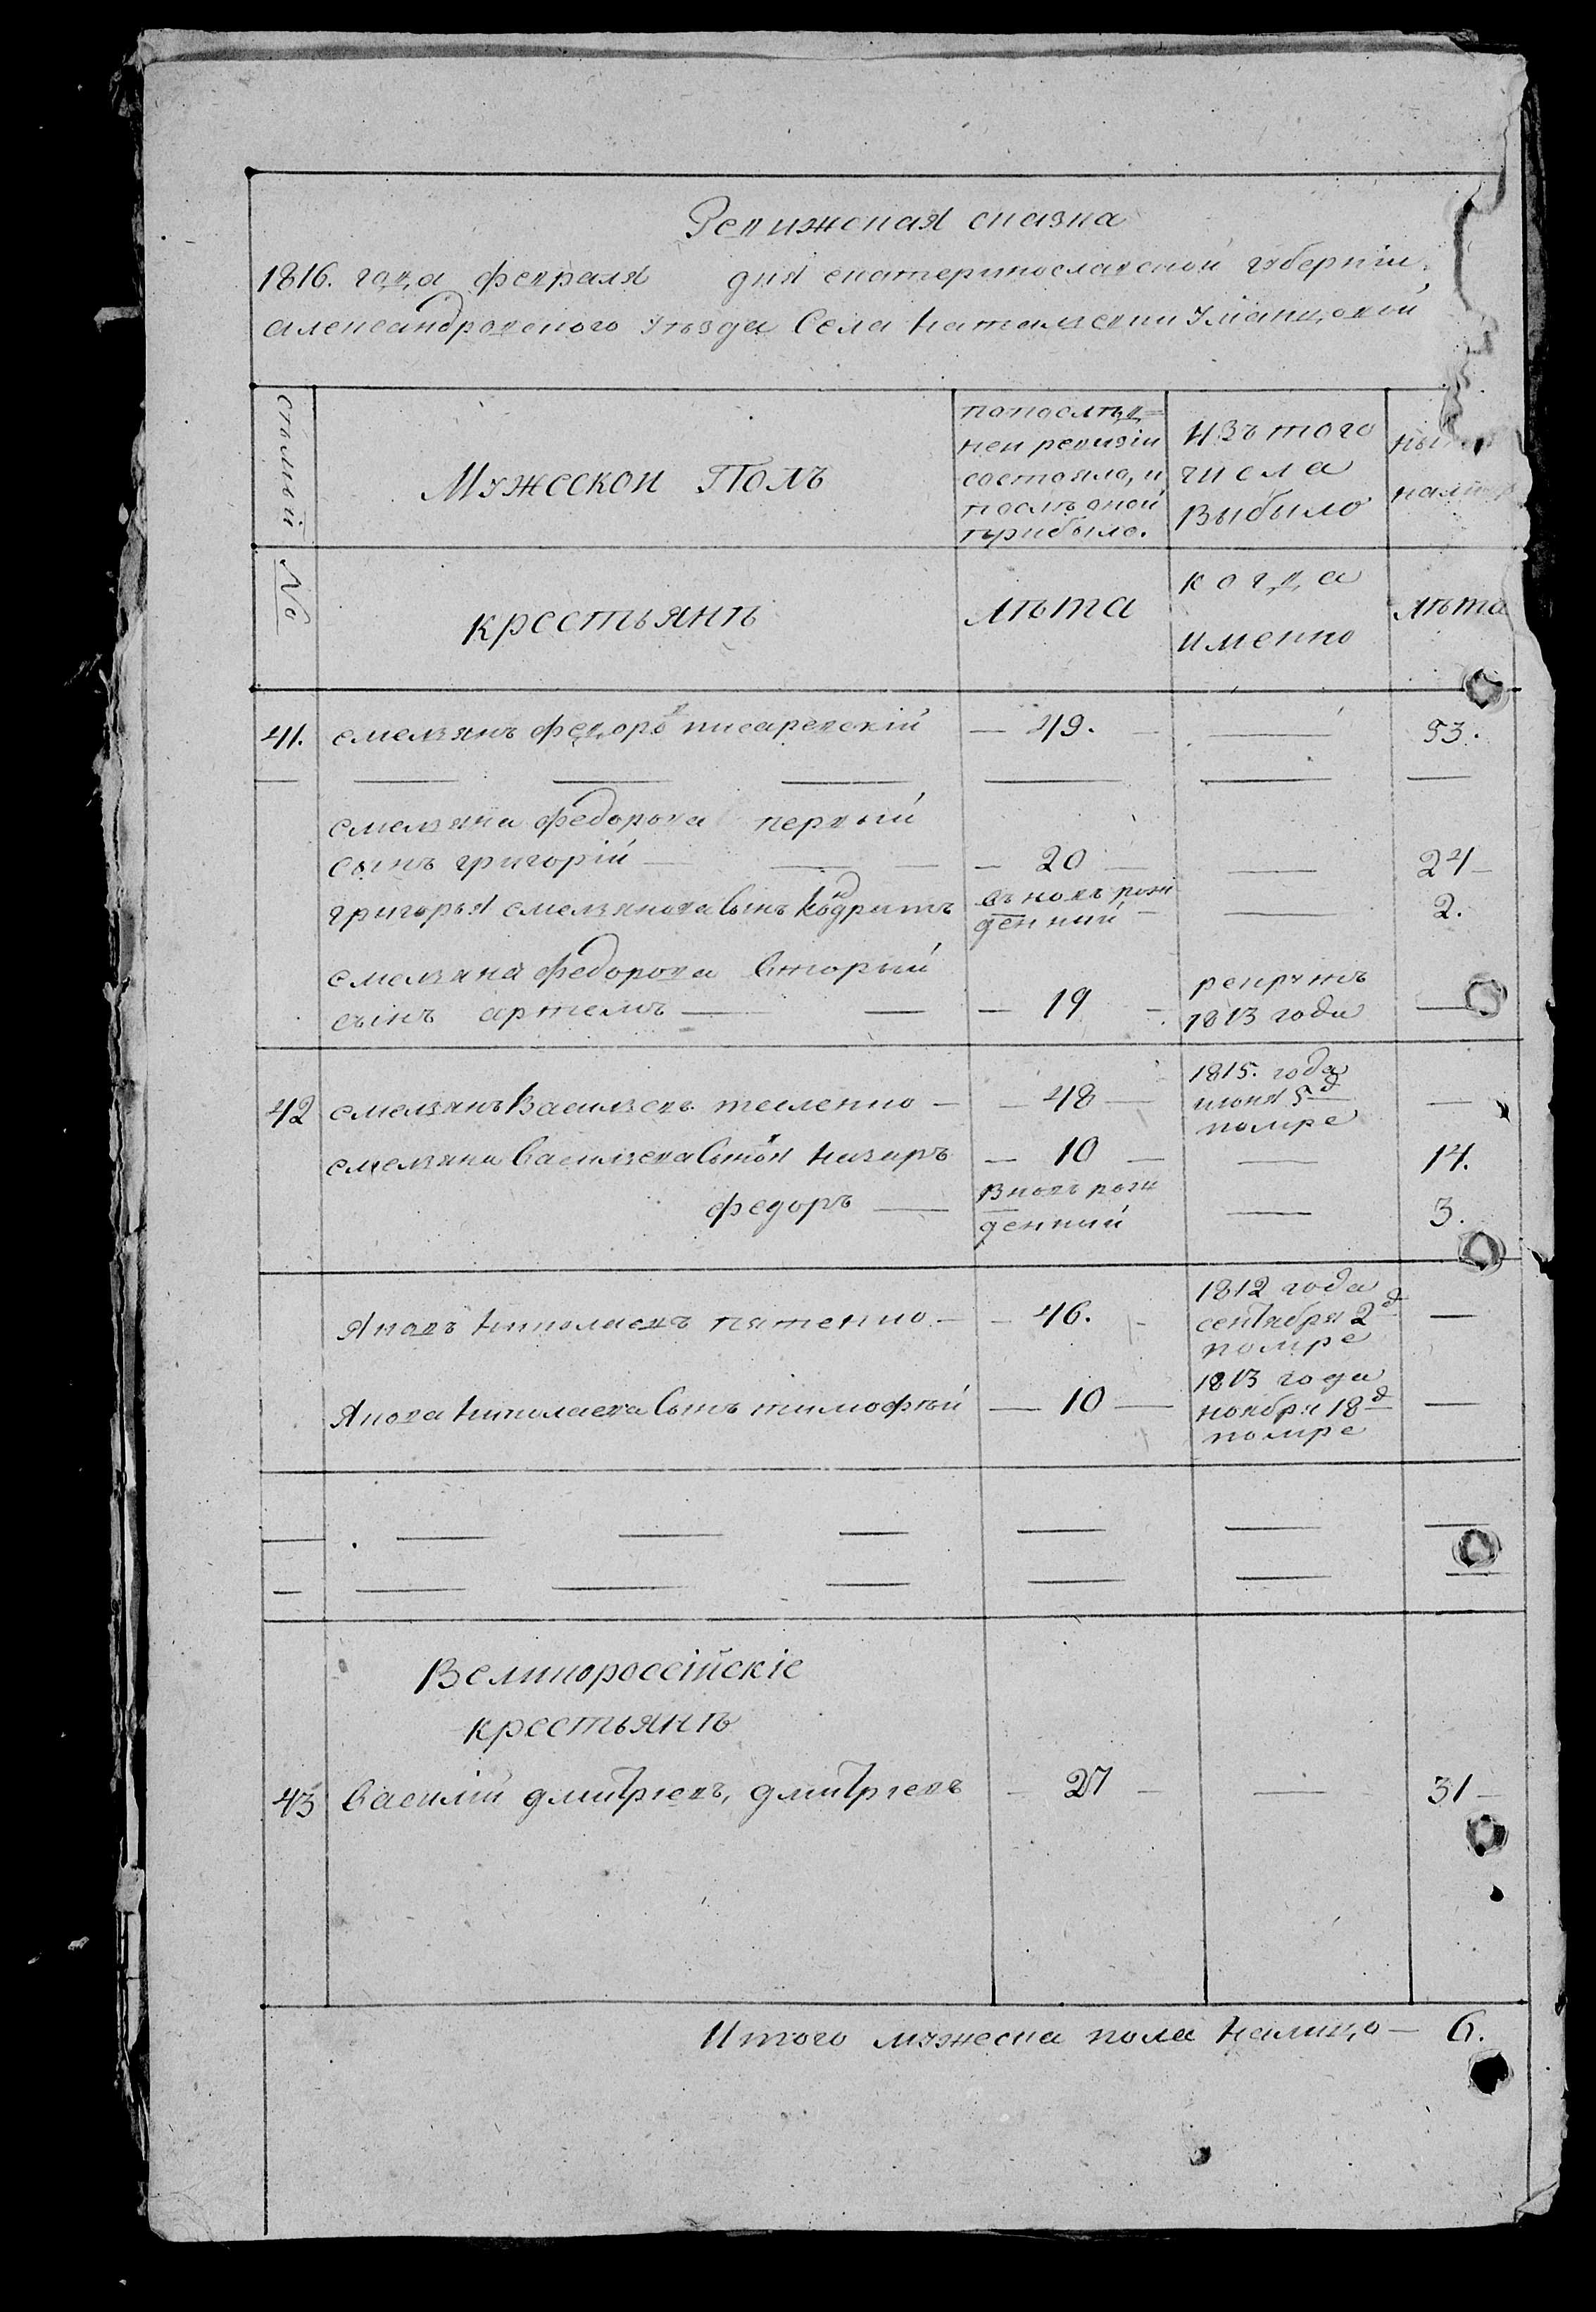 Ревижская сказка
1816. года февраля дня екатеринославской губернїи,
александровского уѣзда Села натальевки
семьий
Мужескои Полъ
попослѣд=
неи ревизїи
состояло, и
послѣ оной
прибыло.
изъ того
числа
выбыло
ны
налиц
№
крестьянѣ
лѣта
когда
именно
лѣта
41. емельянъ федоровъ писаревскїй — 49. — — 53.
емельяна федорова первый
сынъ григорїй — — 20 — — 24
григорья емельянова Сынъ кондратъ вновь рож
денний — — 2.
емельяна федорова вторый
сынъ артемъ — — 19 — рекрутъ
1813 года —
42 емельянъ Васильевъ тесленко — 48 — 1815. года
июня 5д
помре —
емельяна Васильева Сыновья назаръ — 10 — — 14.
федоръ — вновь рож
денний — 3.
Яковъ николаевъ — 46. — 1812 года
сентября 2д
помре —
Якова николаева Сынъ тимофѣй — 10 — 1813 года
ноября 18д
помре —
Великоросеїйскїе
крестьянѣ
43 Василїй дмитрїевъ, дмитрїевъ — 27 — — 31
Итого мужеска пола налицо — 6.